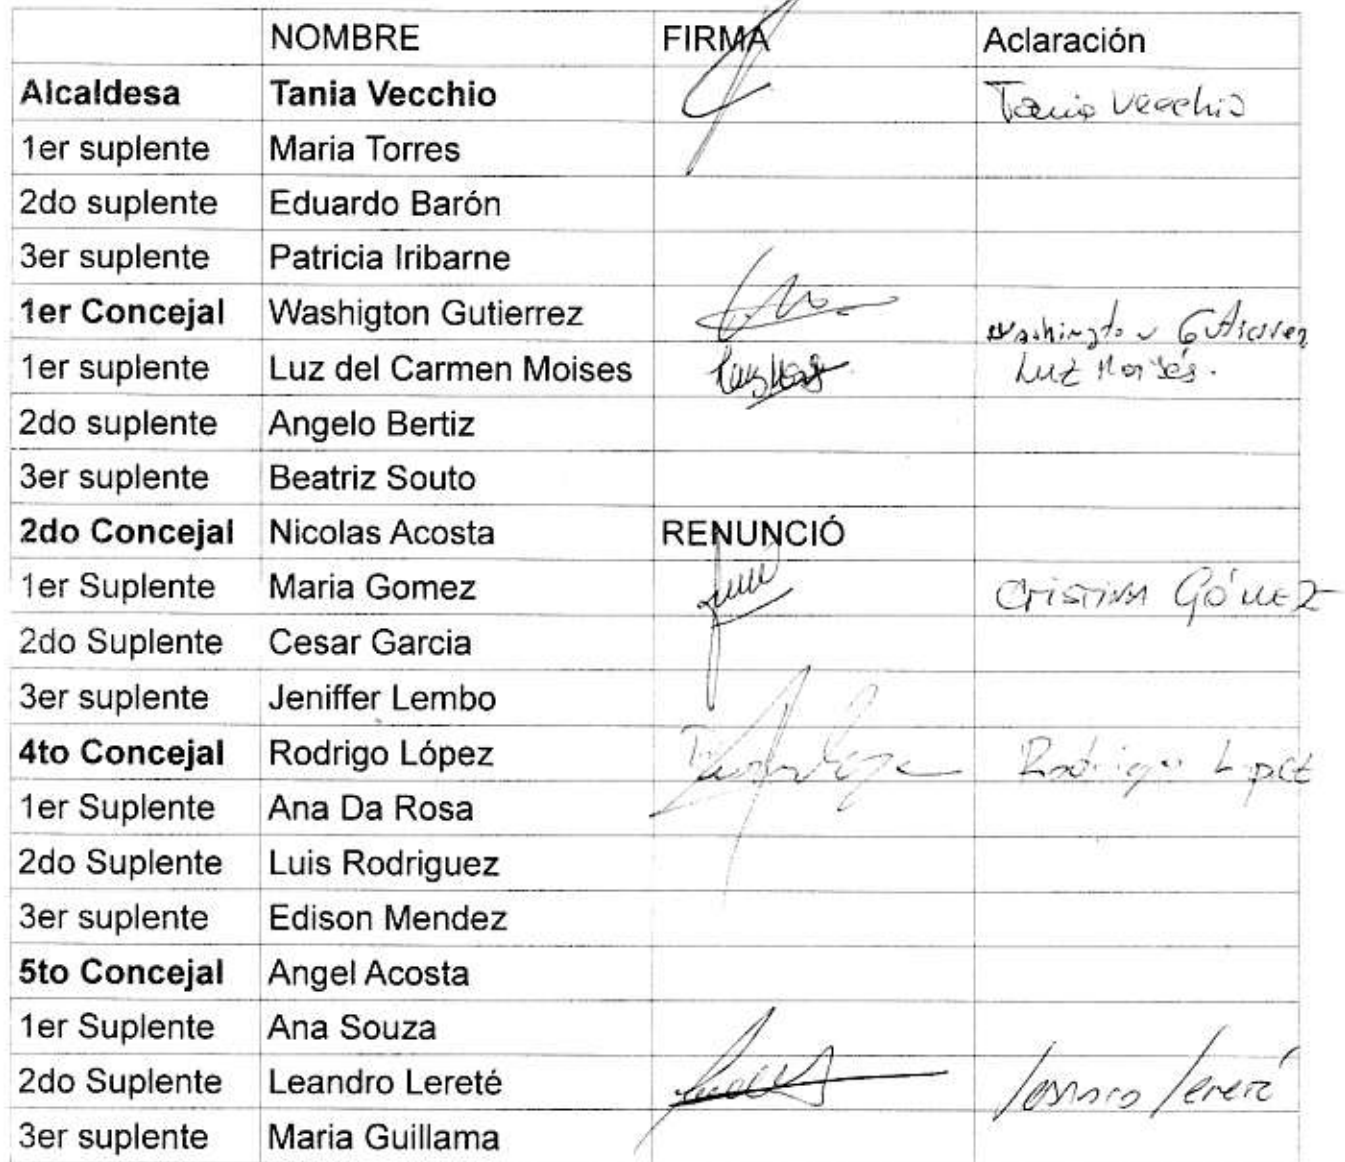 NOMBRE FIRMA Aclaración
Alcaldesa Tania Vecchio Tania Vecchio
1er suplente Maria Torres
2do suplente Eduardo Barón
3er suplente Patricia Iribarne
1er Concejal Washigton Gutierrez Washington Gutierrez
1er suplente Luz del Carmen Moises Luz Moisés.
2do suplente Angelo Bertiz
3er suplente Beatriz Souto
2do Concejal Nicolas Acosta RENUNCIÓ
1er Suplente Maria Gomez Cristina Gómez
2do Suplente Cesar Garcia
3er suplente Jeniffer Lembo
4to Concejal Rodrigo López Rodrigo Lopez
1er Suplente Ana Da Rosa
2do Suplente Luis Rodriguez
3er suplente Edison Mendez
5to Concejal Angel Acosta
1er Suplente Ana Souza
2do Suplente Leandro Lereté Leandro Lereté
3er suplente Maria Guillama